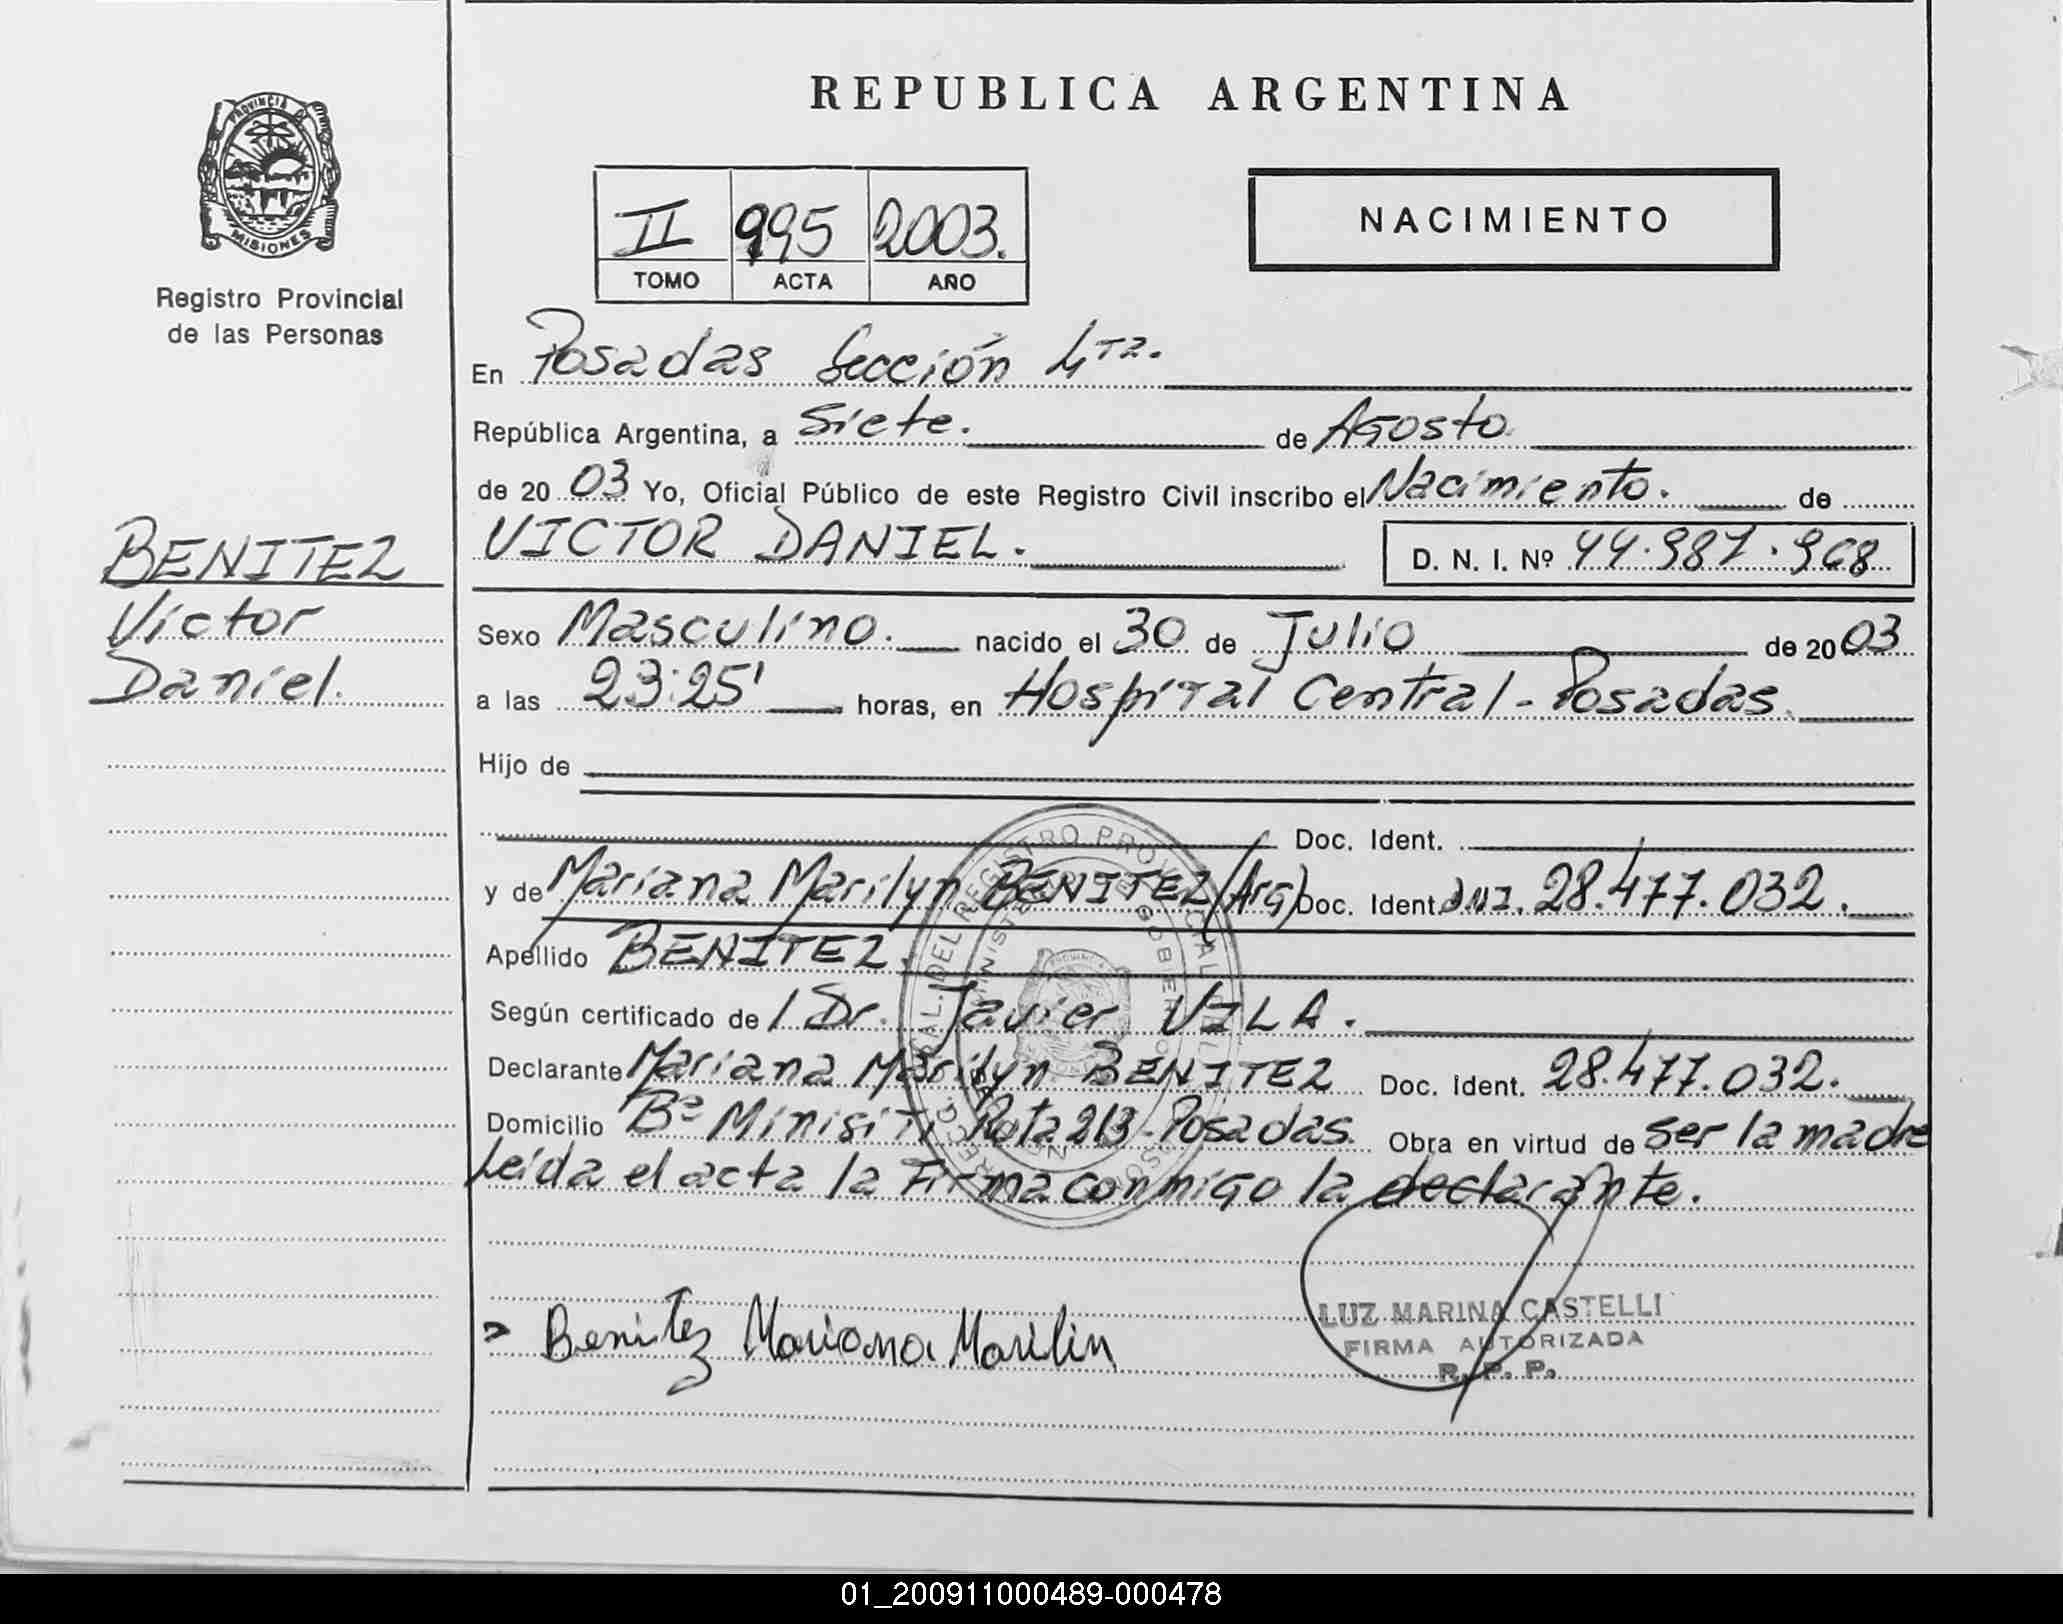 REPUBLICA ARGENTINA
PROVINCIA DE
MISIONES
Registro Provincial
de las Personas
II 995 2003.
TOMO ACTA AÑO
NACIMIENTO
En Posadas Sección 4ta.
República Argentina, a Siete. de Agosto
de 2003 Yo, Oficial Público de este Registro Civil inscribo el Nacimiento. de
VICTOR DANIEL. D. N. I. Nº 44.987.968
BENITEZ
Victor
Daniel.
Sexo Masculino. nacido el 30 de Julio de 2003
a las 23:25' horas, en Hospital Central - Posadas.
Hijo de
Doc. Ident.
y de Mariana Marilyn BENITEZ (Arg) Doc. Ident. DNI. 28.477.032.
Apellido BENITEZ.
Según certificado de l Dr. Javier VILA.
Declarante Mariana Marilyn BENITEZ Doc. Ident. 28.477.032.
Domicilio Bº Minisiti Rota 213 - Posadas. Obra en virtud de ser la madre
Leída el acta la Firma conmigo la declarante.
Benitez Mariana Marilin
LUZ MARINA CASTELLI
FIRMA AUTORIZADA
R. P. P.
01_200911000489-000478